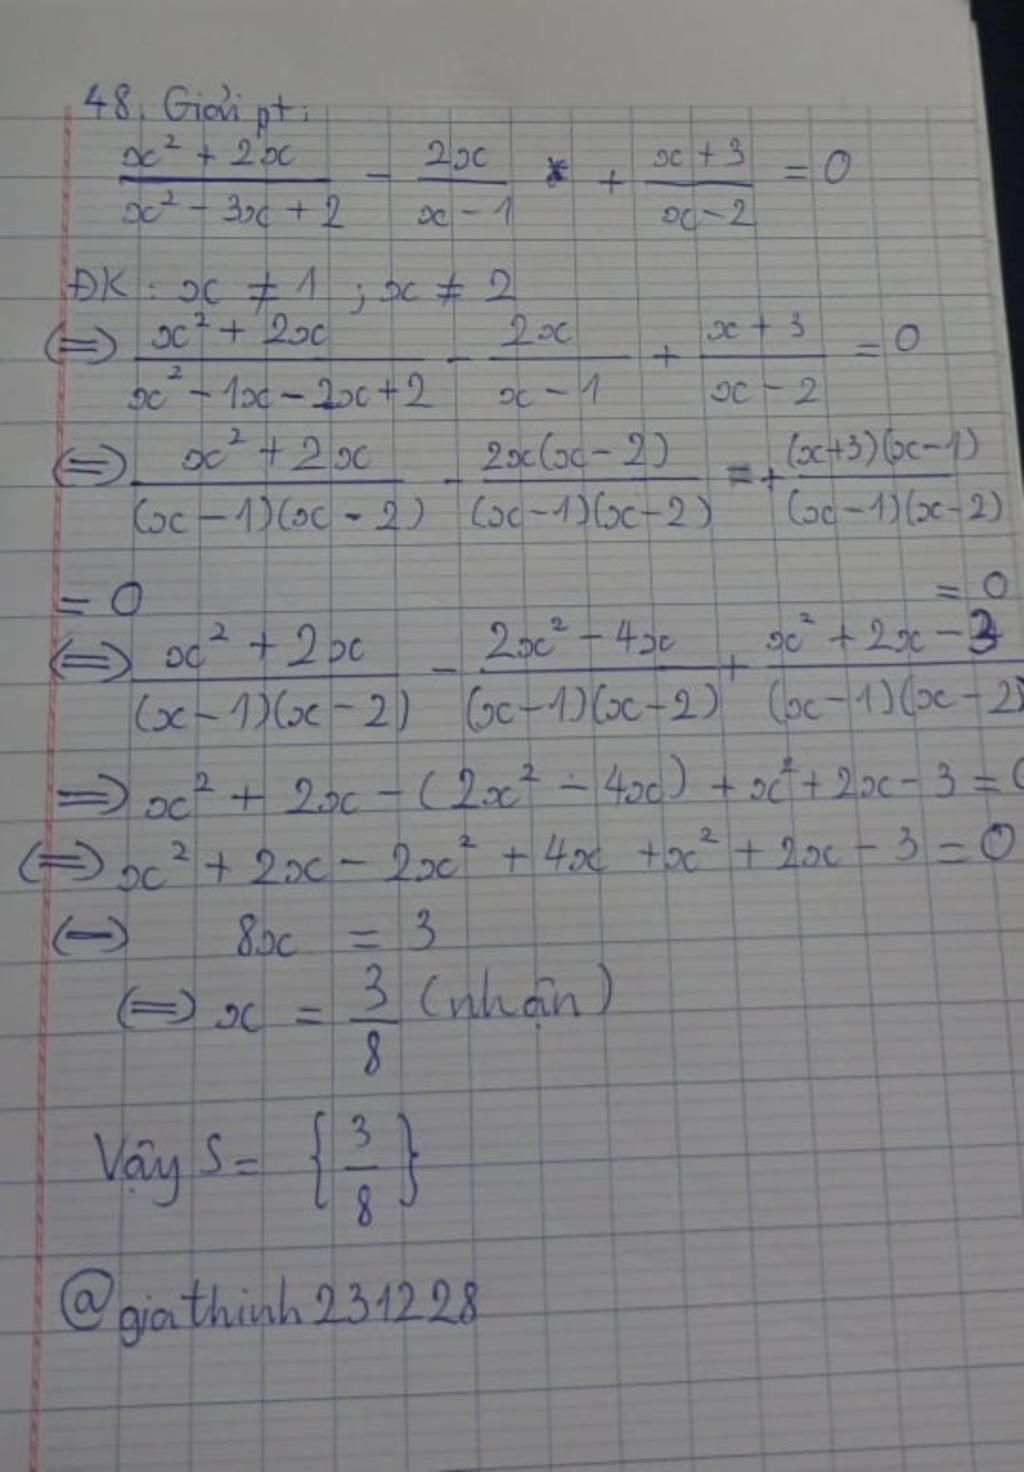 48, Giải pt:
(x² + 2x)/(x² - 3x + 2) - 2x/(x - 1) + (x + 3)/(x - 2) = 0
ĐK: x ≠ 1 ; x ≠ 2
(=) (x² + 2x)/(x² - 1x - 2x + 2) - 2x/(x - 1) + (x + 3)/(x - 2) = 0
(=) (x² + 2x)/((x - 1)(x - 2)) - 2x(x - 2)/((x - 1)(x - 2)) + (x+3)(x-1)/((x - 1)(x - 2))
= 0 = 0
(=) (x² + 2x)/((x - 1)(x - 2)) - (2x² - 4x)/((x - 1)(x - 2)) + (x² + 2x - 3)/((x - 1)(x - 2)
=) x² + 2x - (2x² - 4x) + x² + 2x - 3 =
(=) x² + 2x - 2x² + 4x + x² + 2x - 3 = 0
(-) 8x = 3
(=) x = 3/8 (nhận)
Vậy S = {3/8}
@giathinh231228